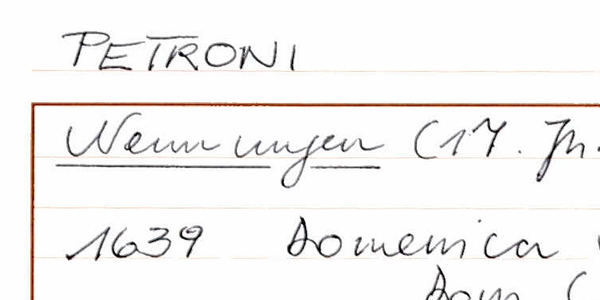 PETRONI
Nennungen (17. Jh.
1639 Domenica
Dom